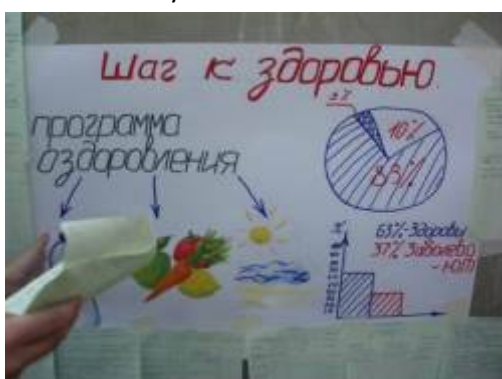 Шаг к здоровью
программа
оздоровления
10%
83%
63%-Здоровы
37% Заболева
-ют